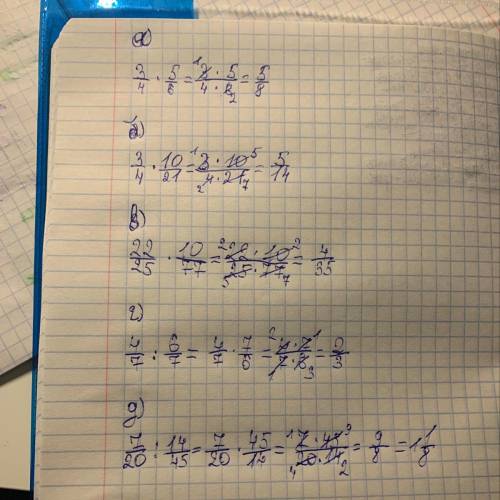 а)
3/4 · 5/6 = 3 · 5 / 4 · 6 = 5/8
б)
3/4 · 10/21 = 3 · 10 / 4 · 21 = 5/14
в)
22/25 · 10/77 = 22 · 10 / 25 · 77 = 4/35
г)
4/7 : 6/7 = 4/7 · 7/6 = 4 · 7 / 7 · 6 = 2/3
д)
7/20 : 14/45 = 7/20 · 45/14 = 7 · 45 / 20 · 14 = 9/8 = 1 1/8